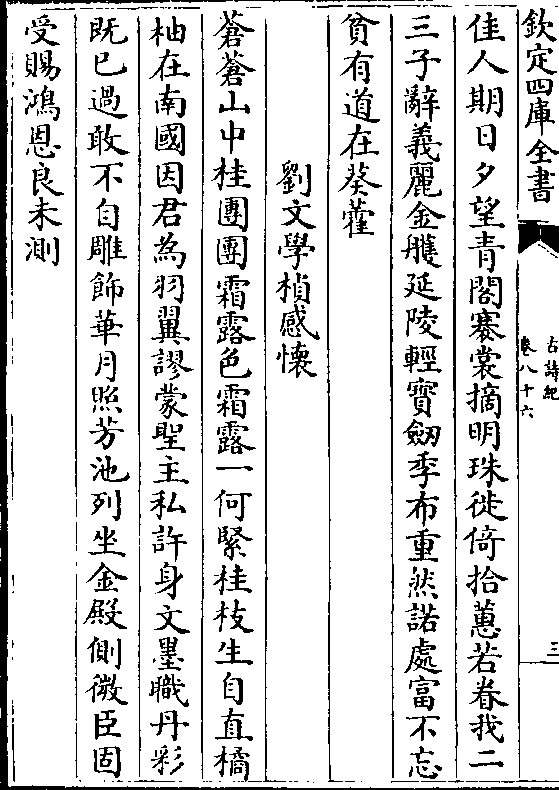 欽定四庫全書
古詩紀
卷八十六
三
佳人期日夕望青閣褰裳摘明珠徙倚拾蕙若眷我二
三子辭義麗金雘延陵輕寳劒季布重然諾處富不忘
貧有道在葵藿
劉文學楨感懷
蒼蒼山中桂團團霜露色霜露一何緊桂枝生自直橘
柚在南國因君為羽翼謬蒙聖主私許身文墨職丹彩
既已過敢不自雕飾華月照芳池列坐金殿側微臣固
受賜鴻恩良未測